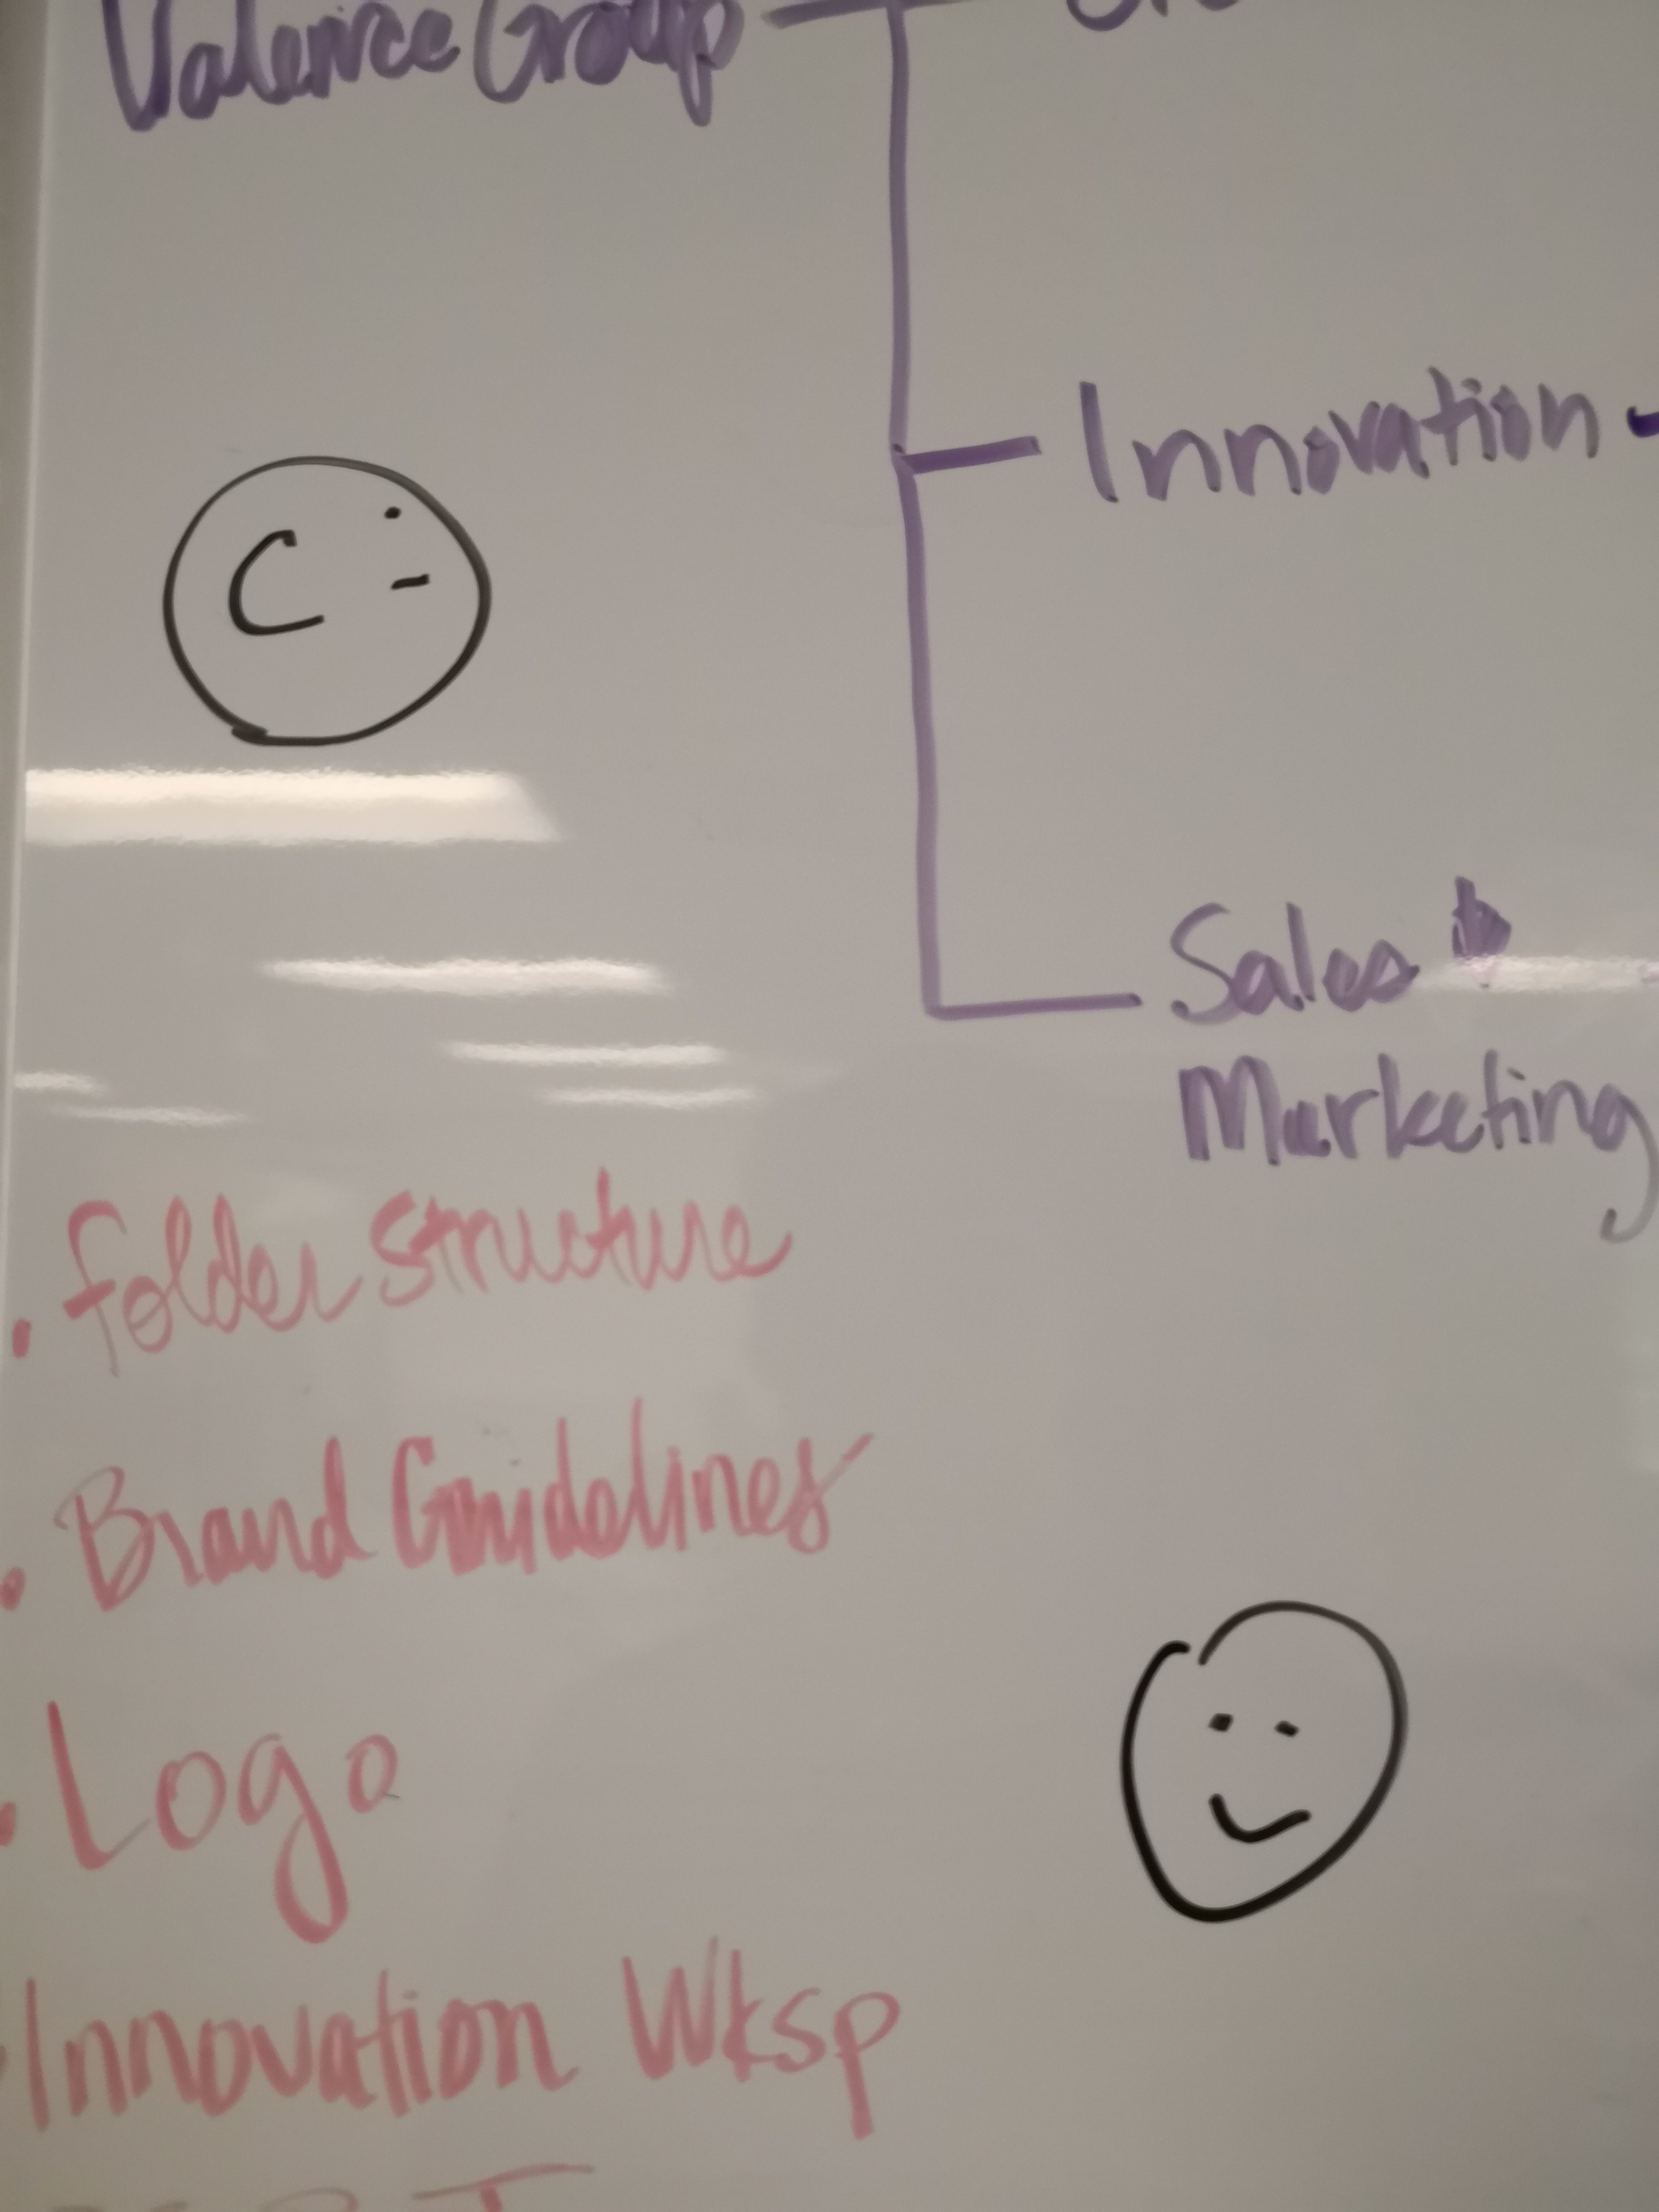 Valence Group
Innovation
Sales &
Marketing
. folder structure
. Brand Guidelines
. Logo
Innovation Wksp